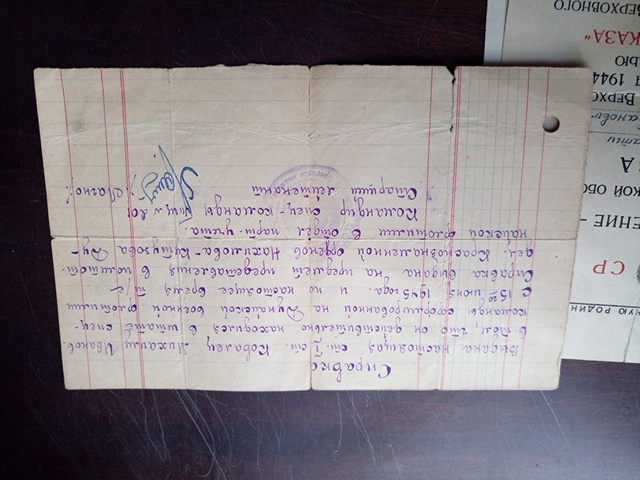 Справка
Выдана настоящая ст. II ст. Ковалец Михаилу Иванов.
в том, что он действительно находился в штате спец-
команды сформированной на Дунайской военной флотилии
с 15 го июня 1945 года. и по настоящее время т/г
Справка выдана на предмет представления в политот-
дел Краснознаменной орденов Нахимова-Кутузова Ду-
найской флотилии в отдел парт. учета.
Командир спец-команды
Старший лейтенант
СР
ЕНИЕ –
КОЙ ОБО
А
ВЕРХО
я 1944
ЬЮ
КАЗА"
ВЕРХОВНОГО
УЮ РОДИН